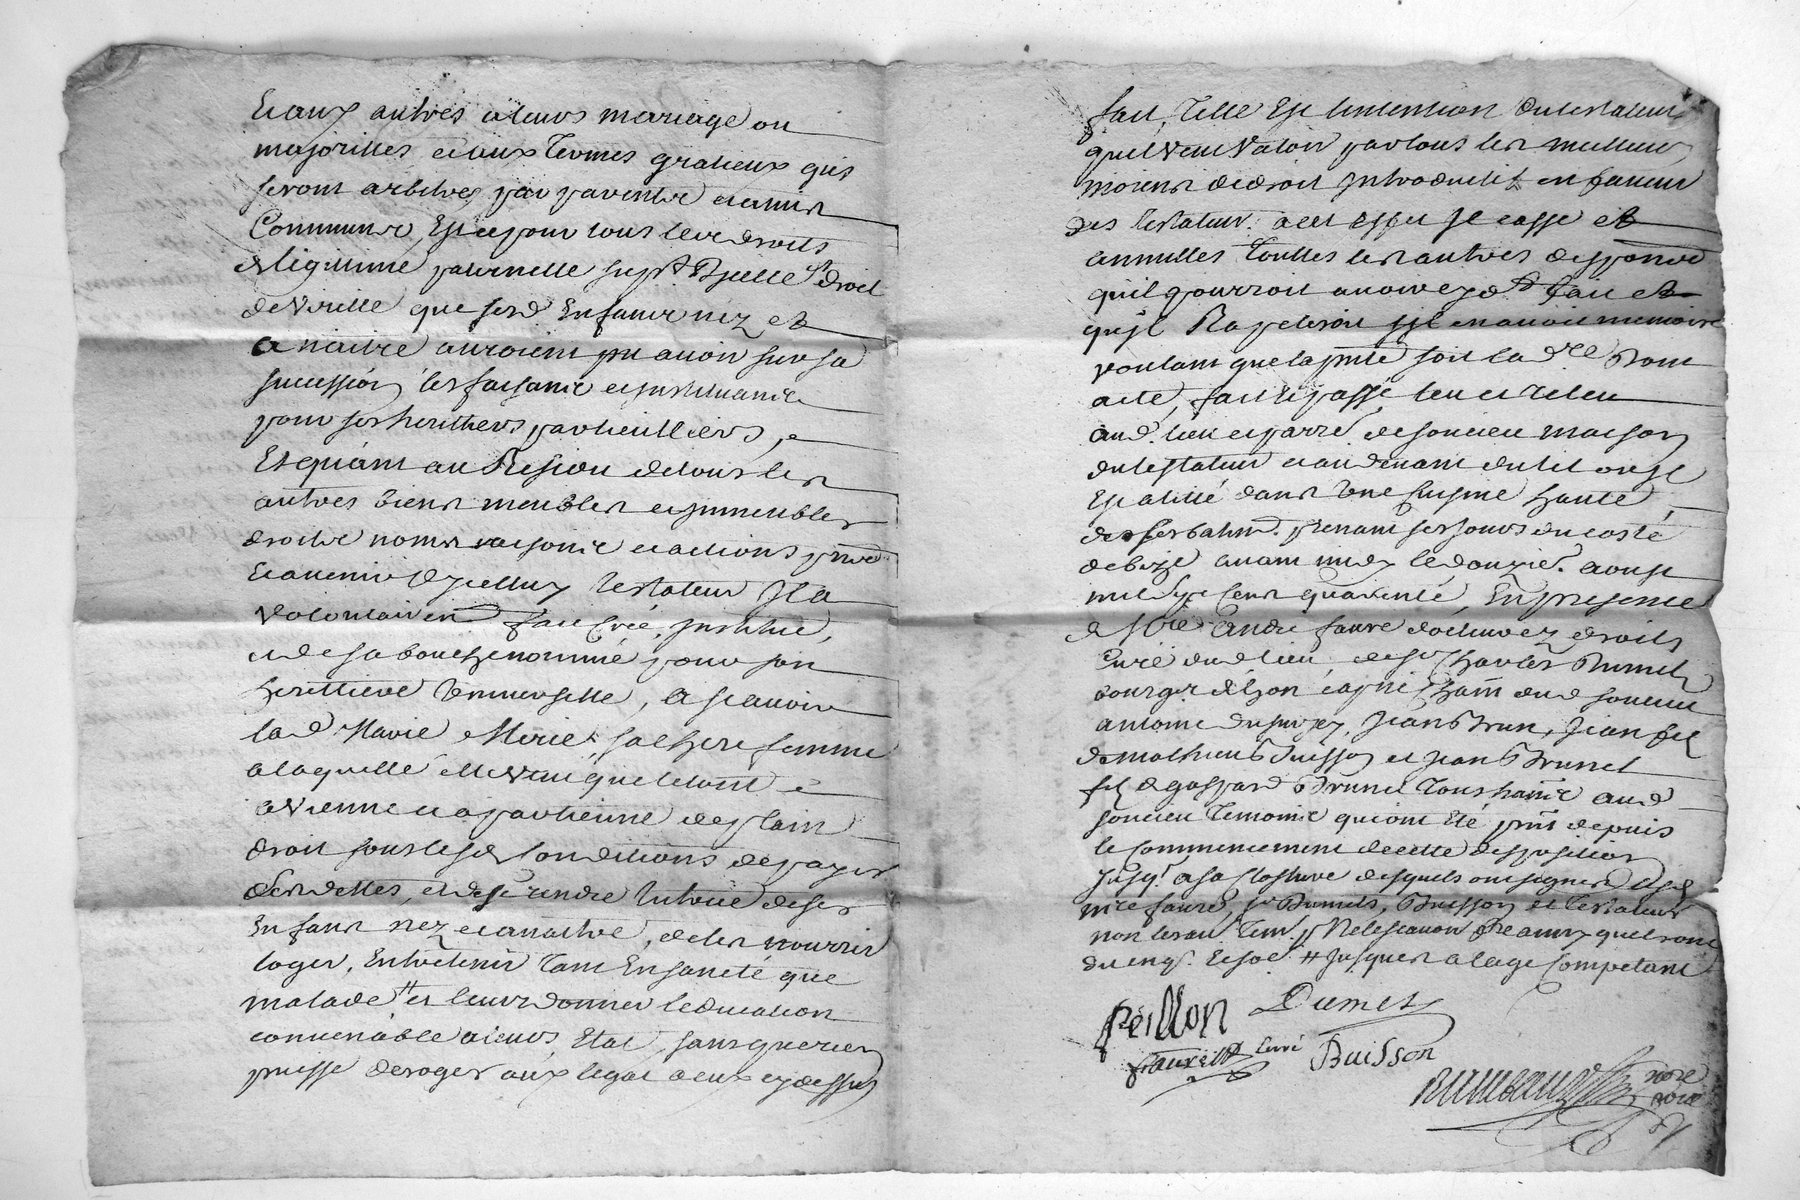 Et aux autres a leurs mariage ou
majorittes et aux Termes gratieux quis
seront arbitres par parentz et amis
Communs, Et ce pour tous leurs droits
de legittime paternelle supt droit
de Viville que sesd Enfans nez et
a naitre auroient pu avoir sur sa
succession, les faisant et instituant
pour ses herittiers particulliers,
Et quant au Residu de tous les
autres biens meubles et immeubles
droits noms raisons et actions pnts
et avenir dycelluy Testateur Il a
volontairem fait Créé, Institué,
et de sa bouche nommé pour son
heritiere Vniverselle, a scavoir
lad Marie Merie sa chere femme
a laquelle elle veut que le tout
advienne et apartienne de plain
droit sous lesd Conditions de payer
sesd dettes, et de se rendre tutrice de ses
Enfans nez et a naitre, de les nourrir
loger, Entretenir Tant En santé que
malade # et leurs donner leducation
convenable a leurs Etat, sans quering
puisse deroger aux legat a eux cy dessus
fait, Telle Est lintention du testateur
quil veut valoir par tous les meilleurs
moiens de droit introductif en faveur
des testateur. a cet effet Il casse et
annulles Touttes les autres dispon
quil pourroit avoir cyd fait et
quil Rapeleroit sil en avoit memoire
voulant que la pnte soit la dre Dont
acte, fait et passé, leu et releu
aud. lieu et parre de soucieu maison
du testateur et au devant du lit ou Il
Est alitté dans Vne Cuisine haute,
de ses batim. prenant ses jours du costé
de bize avant midy le douzie. aoust
mil sept cent quarente, En presence
de Mre andré faure docteur ez droits
Curé dud lieu, de sr Charles Dumets
bourgs. de lyon
antoine, Jean Brun, Jean fils
de mathieu Buisson et Jean Brunet
fils de gaspard Brunet Tous hants aud
soucieu Temoins qui ont Eté pnts depuis
le commencement de cette disposition
Jusq. a sa Closture desquels ont signer lesd
mre faure, sr Dumets, Buisson et Testateur
non les au Tem. p Ne le scavoir
du enq. et soe # Jusques a lage competant
Peillon Dumets
faure curé Buisson
nore
Roial